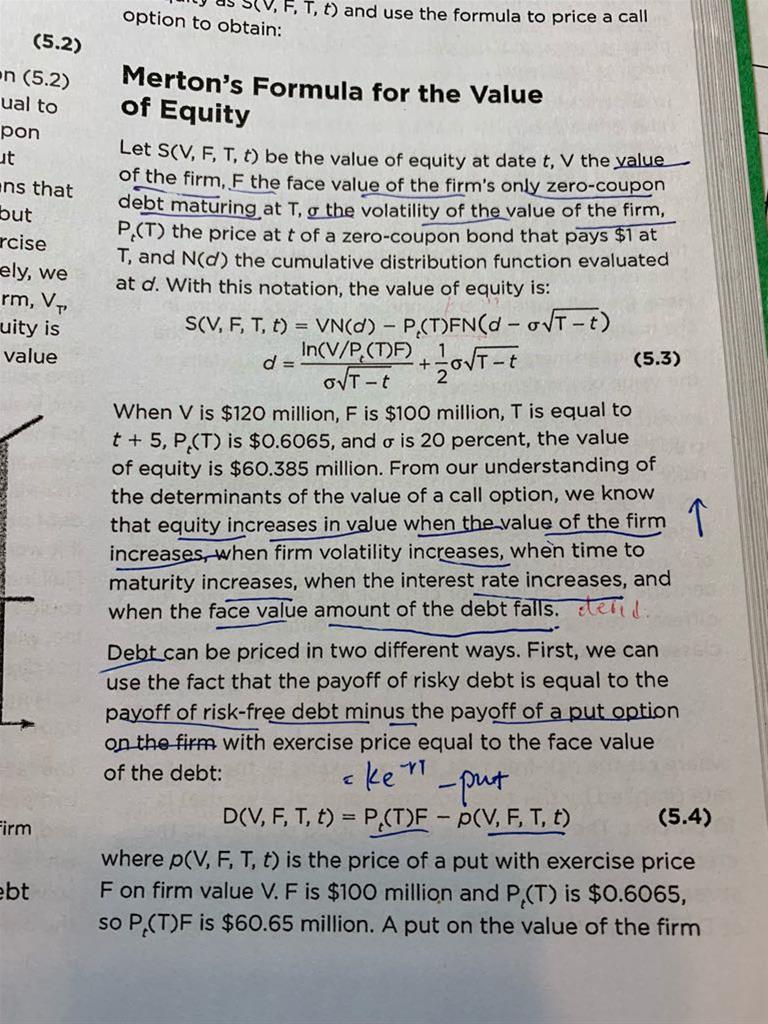 as S(V, F, T, t) and use the formula to price a call
option to obtain:
(5.2)
(5.2)
ual to
pon
ut
ns that
but
rcise
ely, we
rm, V_T,
uity is
value
Firm
ebt
Merton's Formula for the Value
of Equity
Let S(V, F, T, t) be the value of equity at date t, V the value
of the firm, F the face value of the firm's only zero-coupon
debt maturing at T, σ the volatility of the value of the firm,
P_t(T) the price at t of a zero-coupon bond that pays $1 at
T, and N(d) the cumulative distribution function evaluated
at d. With this notation, the value of equity is:
S(V, F, T, t) = VN(d) − P_t(T)FN(d − σ√T − t)
d = ln(V/P_t(T)F) / σ√T − t + 1/2 σ√T − t (5.3)
When V is $120 million, F is $100 million, T is equal to
t + 5, P_t(T) is $0.6065, and σ is 20 percent, the value
of equity is $60.385 million. From our understanding of
the determinants of the value of a call option, we know
that equity increases in value when the value of the firm ↑
increases, when firm volatility increases, when time to
maturity increases, when the interest rate increases, and
when the face value amount of the debt falls.
Debt can be priced in two different ways. First, we can
use the fact that the payoff of risky debt is equal to the
payoff of risk-free debt minus the payoff of a put option
on the firm with exercise price equal to the face value
of the debt:
= ke^-rT - put
D(V, F, T, t) = P_t(T)F − p(V, F, T, t) (5.4)
where p(V, F, T, t) is the price of a put with exercise price
F on firm value V. F is $100 million and P_t(T) is $0.6065,
so P_t(T)F is $60.65 million. A put on the value of the firm